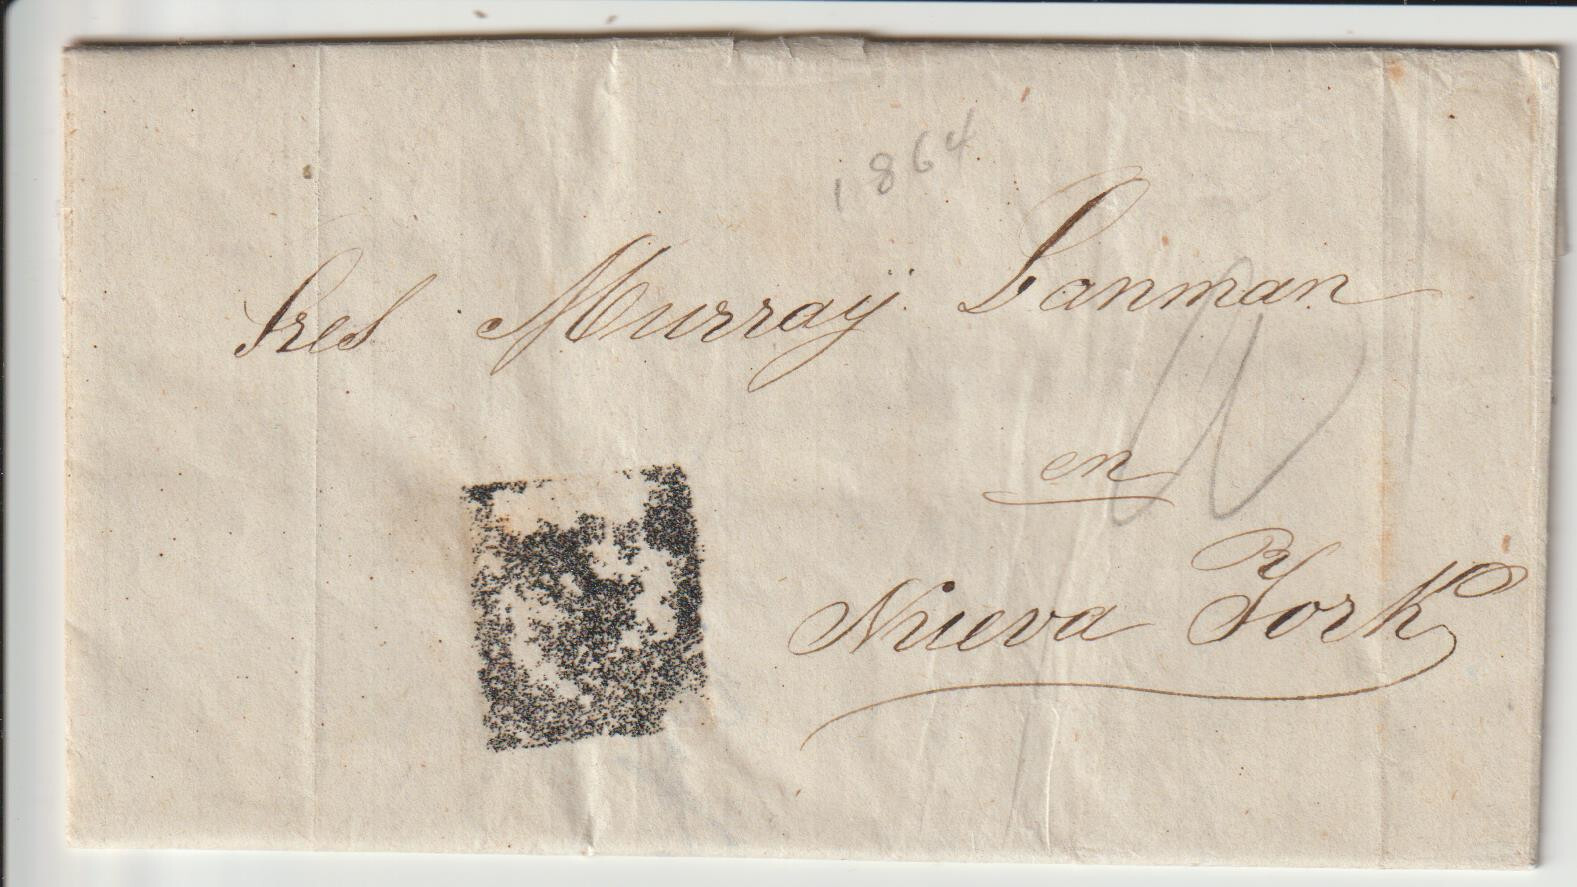 1864
Sres Murray Lanman
en
Nueva York